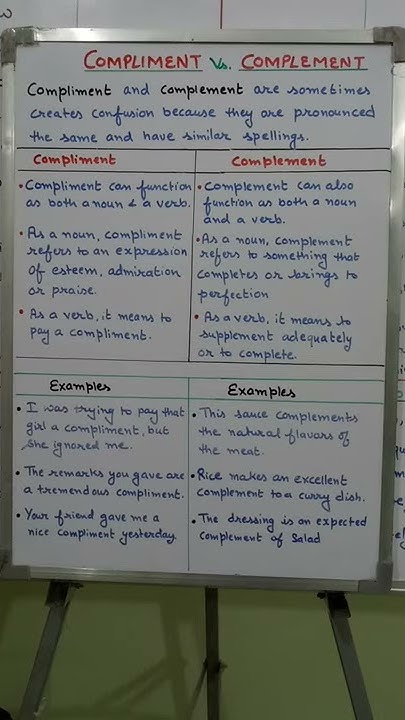 COMPLIMENT Vs. COMPLEMENT
Compliment and complement are sometimes
creates confusion because they are pronounced
the same and have similar spellings.
Compliment
• Compliment can function
as both a noun & a verb.
• As a noun, compliment
refers to an expression
of esteem, admiration
or praise.
• As a verb, it means to
pay a compliment.
Complement
• Complement can also
function as both a noun
and a verb.
• As a noun, complement
refers to something that
completes or brings to
perfection
• As a verb, it means to
supplement adequately
or to complete.
Examples
• I was trying to pay that
girl a compliment, but
she ignored me.
• The remarks you gave are
a tremendous compliment.
• Your friend gave me a
nice compliment yesterday.
Examples
• This sauce complements
the natural flavors of
the meat.
• Rice makes an excellent
complement to a curry dish.
• The dressing is an expected
complement of Salad